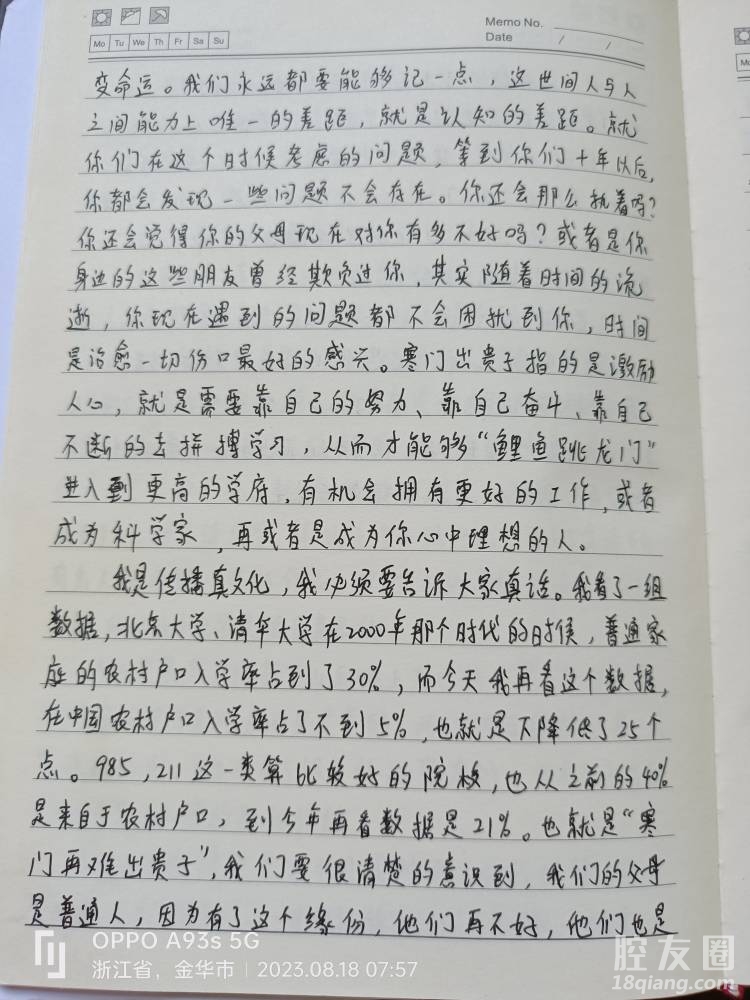 Memo No.
Mo Tu We Th Fr Sa Su
Date / /
变命运。我们永远都要能够记一点，这世间人与人
之间能力上唯一的差距，就是认知的差距。就
你们在这个时候考虑的问题，等到你们十年以后，
你都会发现一些问题不会存在。你还会那么执着吗？
你还会觉得你的父母现在对你有多不好吗？或者是你
身边的这些朋友曾经欺负过你，其实随着时间的流
逝，你现在遇到的问题都不会困扰到你，时间
是治愈一切伤口最好的感兴。寒门出贵子指的是激励
人心，就是需要靠自己的努力、靠自己奋斗、靠自己
不断的去拼搏学习，从而才能够“鲤鱼跳龙门”
进入到更高的学府，有机会拥有更好的工作，或者
成为科学家，再或者是成为你心中理想的人。
我是传播真文化，我必须要告诉大家真话。我看了一组
数据，北京大学、清华大学在2000年那个时代的时候，普通家
庭的农村户口入学率占到了30%，而今天我再看这个数据，
在中国农村户口入学率占了不到5%，也就是下降低了25个
点。985，211这一类算比较好的院校，也从之前的40%
是来自于农村户口，到今年再看数据是21%。也就是“寒
门再难出贵子”，我们要很清楚的意识到，我们的父母
是普通人，因为有了这个缘份，他们再不好，他们也是
OPPO A93s 5G
浙江省，金华市 | 2023.08.18 07:57
腔友圈
18qiang.com